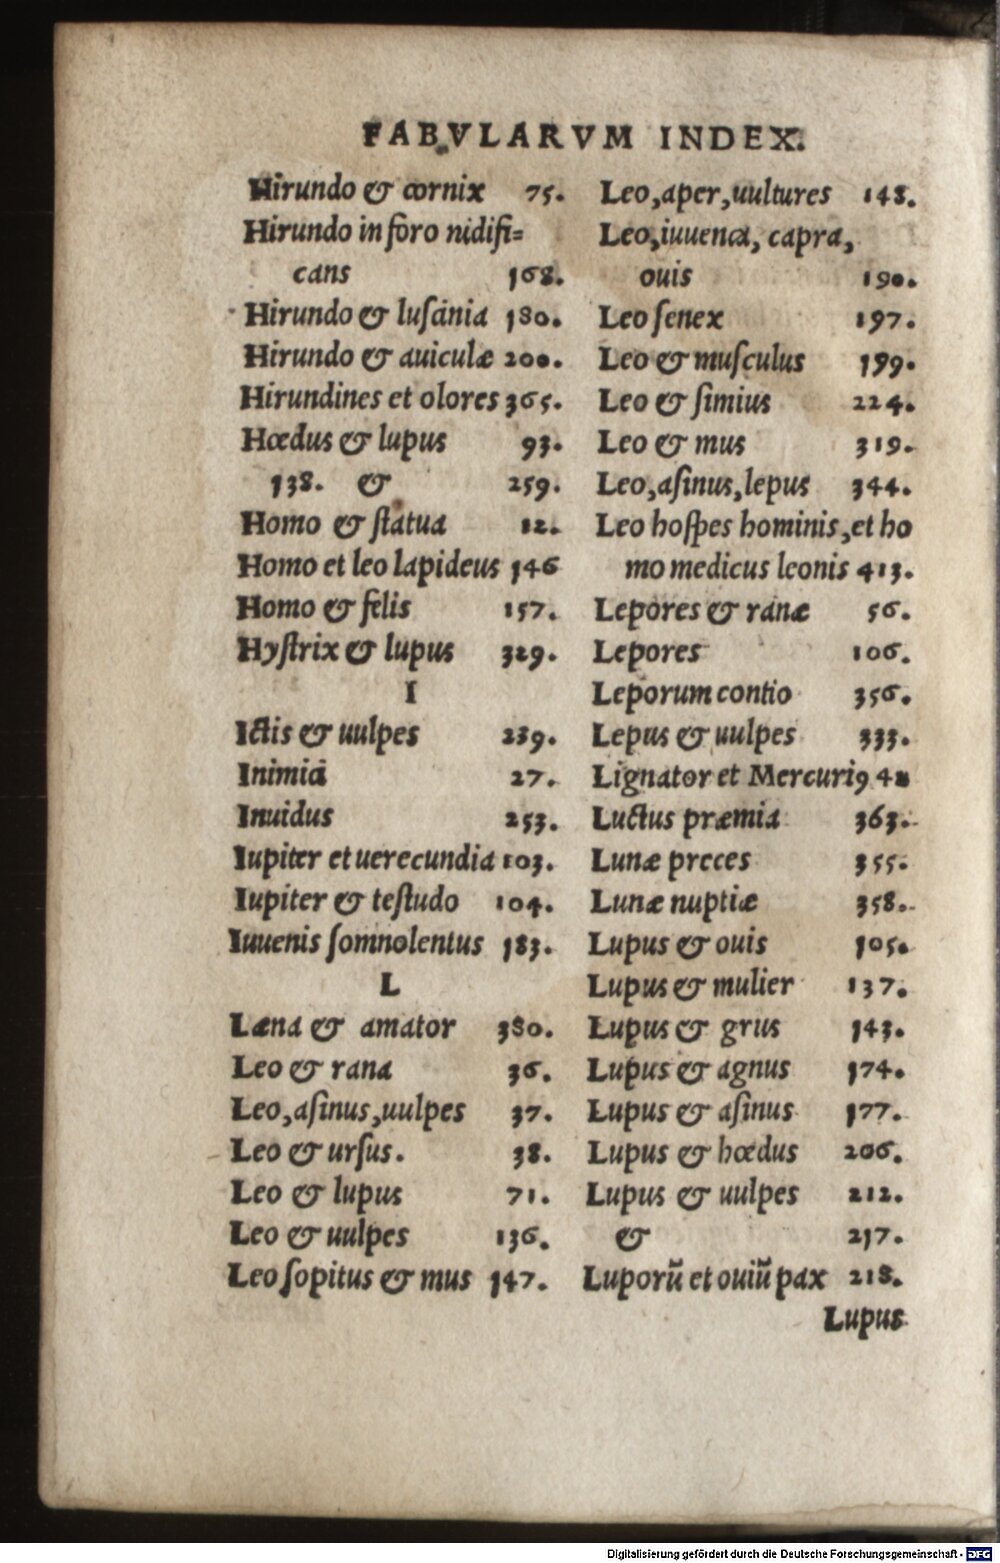 FABVLARVM INDEX.
Hirundo & cornix 75.
Hirundo in foro nidifi=
cans 168.
Hirundo & luſcinia 180.
Hirundo & auiculæ 200.
Hirundines et olores 365.
Hœdus & lupus 93.
138. & 259.
Homo & ſtatua 12.
Homo et leo lapideus 146
Homo & felis 157.
Hyſtrix & lupus 329.
I
Ictis & uulpes 239.
Inimici 27.
Inuidus 253.
Iupiter et uerecundia 103.
Iupiter & teſtudo 104.
Iuuenis ſomnolentus 183.
L
Læna & amator 380.
Leo & rana 36.
Leo, aſinus, uulpes 37.
Leo & urſus. 38.
Leo & lupus 71.
Leo & uulpes 136.
Leo ſopitus & mus 147.
Leo, aper, uultures 148.
Leo, iuuenca, capra,
ouis 190.
Leo ſenex 197.
Leo & muſculus 199.
Leo & ſimius 224.
Leo & mus 319.
Leo, aſinus, lepus 344.
Leo hoſpes hominis, et ho
mo medicus leonis 413.
Lepores & ranæ 56.
Lepores 106.
Leporum contio 356.
Lepus & uulpes 333.
Lignator et Mercuriꝯ
Luctus præmia 363.
Lunæ preces 355.
Lunæ nuptiæ 358.
Lupus & ouis 105.
Lupus & mulier 137.
Lupus & grus 143.
Lupus & agnus 174.
Lupus & aſinus 177.
Lupus & hœdus 206.
Lupus & uulpes 212.
& 217.
Luporū et ouiū pax 218.
Lupus
Digitalisierung gefördert durch die Deutsche Forschungsgemeinschaft - DFG